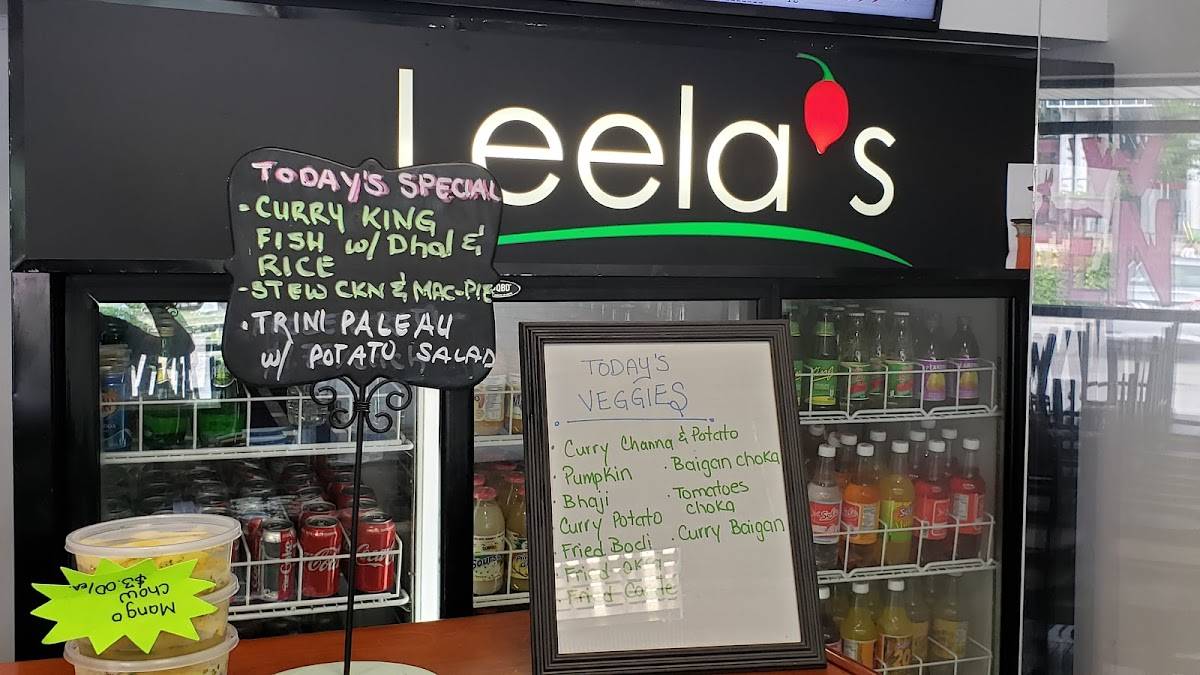 Leela's
TODAY'S SPECIAL
- CURRY KING
FISH w/ Dhal &
RICE
- STEW CKN & MAC-PIE
• TRINI PALEAU
w/ POTATO SALAD
TODAY'S
VEGGIES
• Curry Channa & Potato
• Pumpkin
• Bhaji
• Curry Potato
• Fried Bodi
• Fried
• Fried
• Baigan choka
• Tomatoes
choka
• Curry Baigan
Mango
chow
$3.00/ea
Coca-Cola
Solo